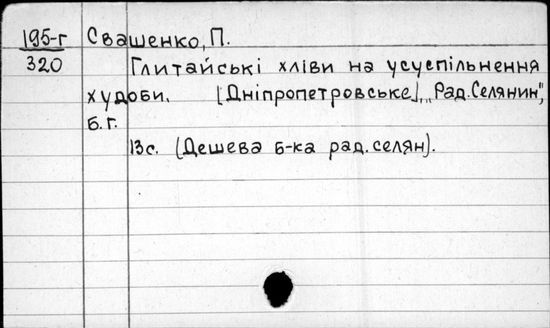 195-г Свашенко, П.
320 Глитайські хліви на усуспільнення
худоби. [Дніпропетровське], „Рад.Селянин",
б.г.
13с. (Дешева б-ка рад.селян).